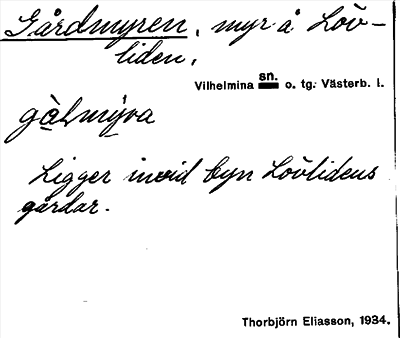 Gårdmyren, myr å Löv-
liden,
Vilhelmina sn. o. tg. Västerb. l.
gàḷmýra
Ligger invid byn Lövlidens
gårdar.
Thorbjörn Eliasson, 1934.